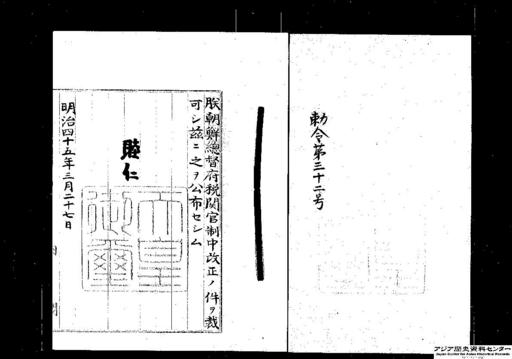 勅令第三十二号
朕朝鮮總督府税関官制中改正ノ件ヲ裁
可シ茲ニ之ヲ公布セシム
睦仁
天皇
御璽
明治四十五年三月二十七日
アジア歴史資料センター
Japan Center for Asian Historical Records